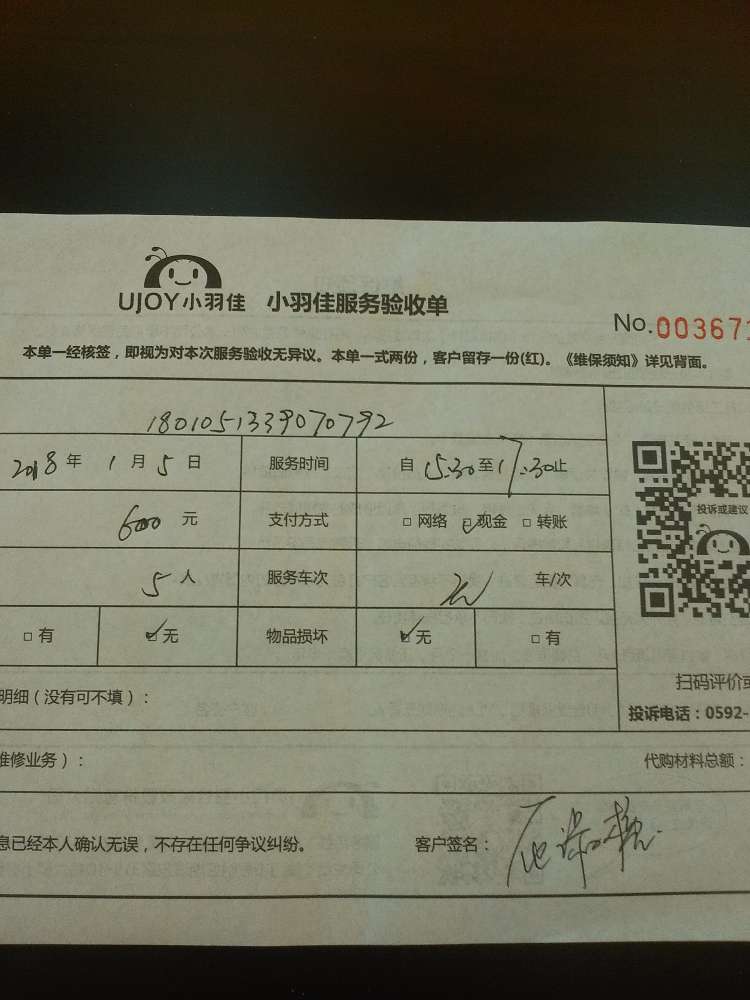 UJOY小羽佳 小羽佳服务验收单
No.003671
本单一经核签，即视为对本次服务验收无异议。本单一式两份，客户留存一份(红)。《维保须知》详见背面。
180105133907079​2
2018年 1月5日 服务时间 自15:30至17:30止
600元 支付方式 □网络 ☑现金 □转账
投诉或建议
5人 服务车次 车/次
□有 ☑无 物品损坏 ☑无 □有
扫码评价或
明细（没有可不填）：
投诉电话：0592-
维修业务）： 代购材料总额：
息已经本人确认无误，不存在任何争议纠纷。 客户签名：